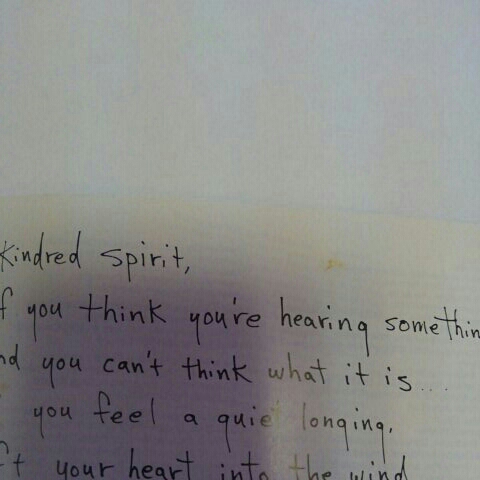 Kindred spirit,
f you think you're hearing somethin
nd you can't think what it is....
you feel a quiet longing,
ft your heart into the wind